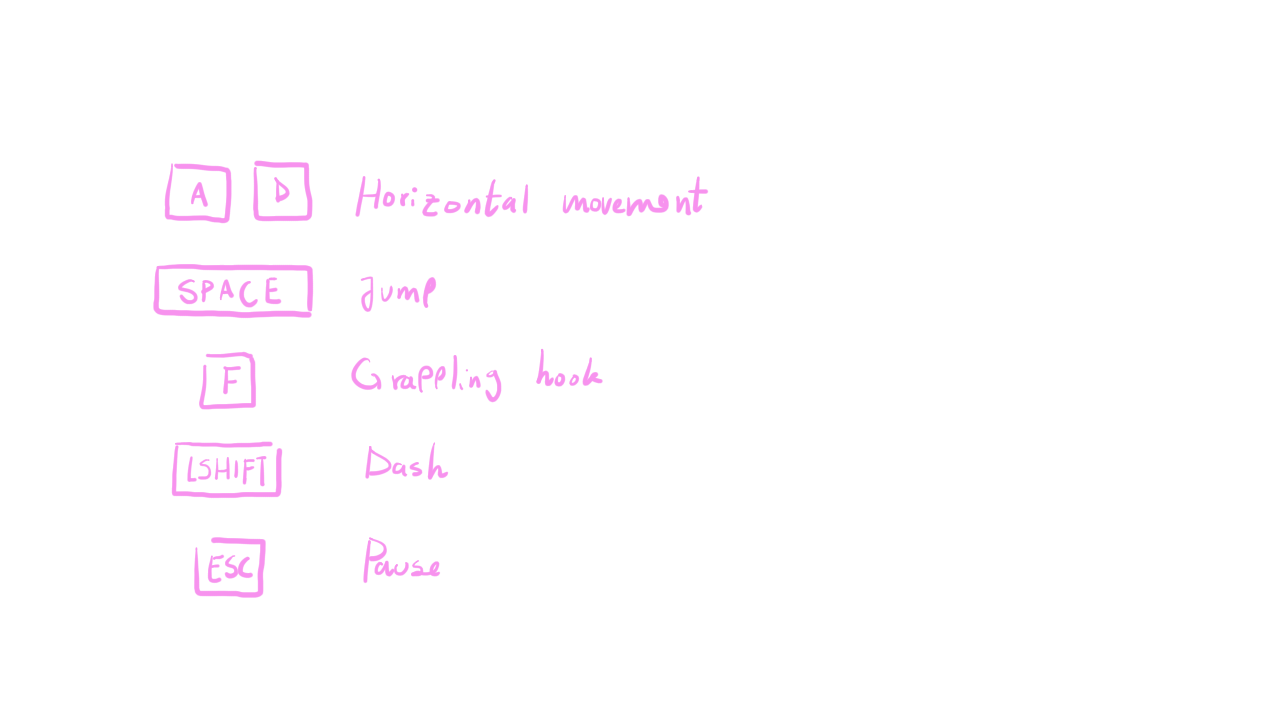 A D Horizontal movement
SPACE Jump
F Grappling hook
LSHIFT Dash
ESC Pause